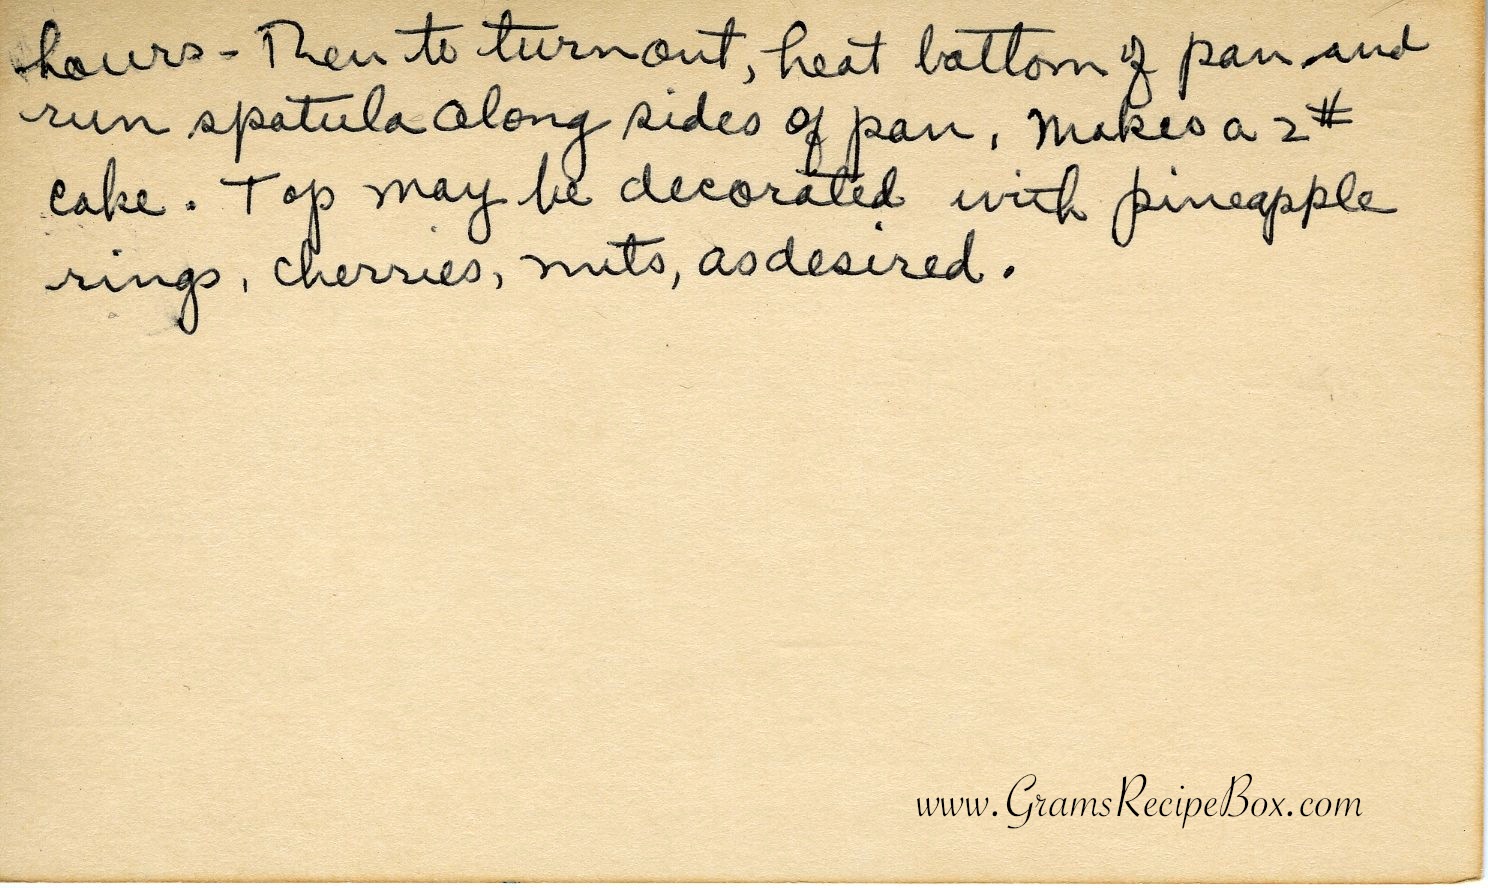 hours - Then to turn out, heat bottom of pan and
run spatula along sides of pan, Makes a 2#
cake. Top may be decorated with pineapple
rings, cherries, nuts, as desired.
www.GramsRecipeBox.com